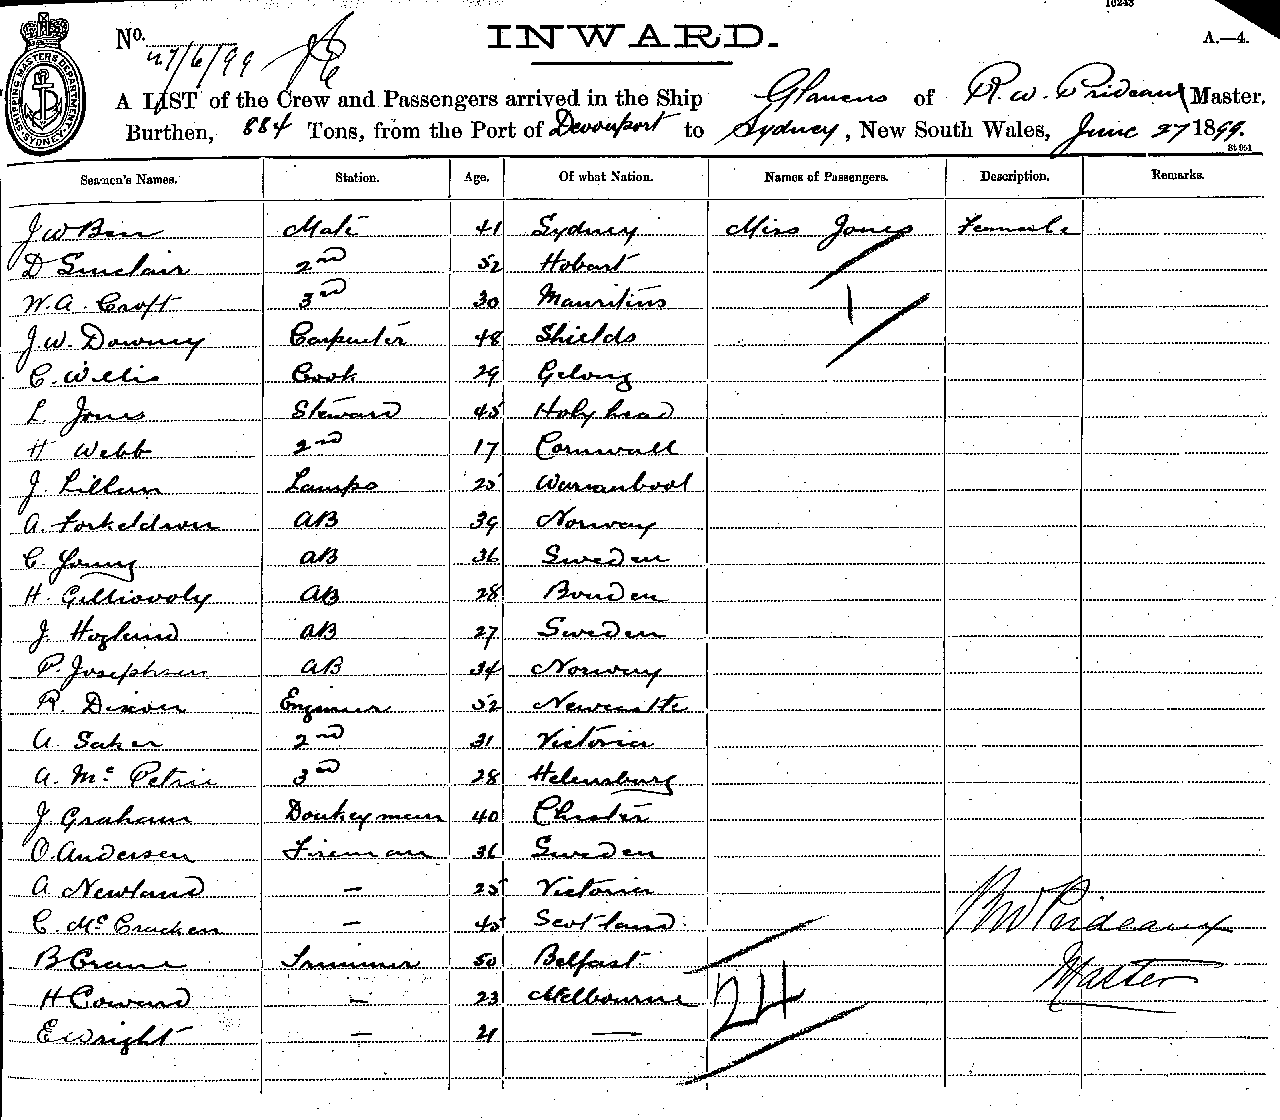 10243
No. 27/6/99
INWARD.
A.—4.
SHIPPING MASTERS DEPARTMENT SYDNEY
A LIST of the Crew and Passengers arrived in the Ship Glaucus of R. W. Prideaux Master,
Burthen, 884 Tons, from the Port of Devonport to Sydney, New South Wales, June 27 1899.
Seamen's Names. Station. Age. Of what Nation. Names of Passengers. Description. Remarks.
J W Mate 41 Sydney Miss Jones Female
D Sinclair 2nd 52 Hobart
W. A. Croft 3rd 30 Mauritius 1
J. W. Downey Carpenter 48 Shields
C. Willis Cook 29 Gelong
L. Jones Steward 45 Holyhead
H Webb 2nd 17 Cornwall
J. Lamps 25 Warranbool
A. AB 39 Norway
C Young AB 36 Sweden
H. AB 28
J Hoglund AB 27 Sweden
P. Josephsen AB 34 Norway
R. Dixon Engineer 52 Newcastle
A. Saker 2nd 31 Victoria
A. Mc Petrie 3rd 28 Helensburg
J Graham Donkeyman 40 Chester
O. Andersen Fireman 36 Sweden
A. Newland — 25 Victoria
C. McCracken — 45 Scotland
R W Prideaux
B Crane Trimmer 50 Belfast
Master
H Coward — 23 Melbourne 24
E Wright — 21 —